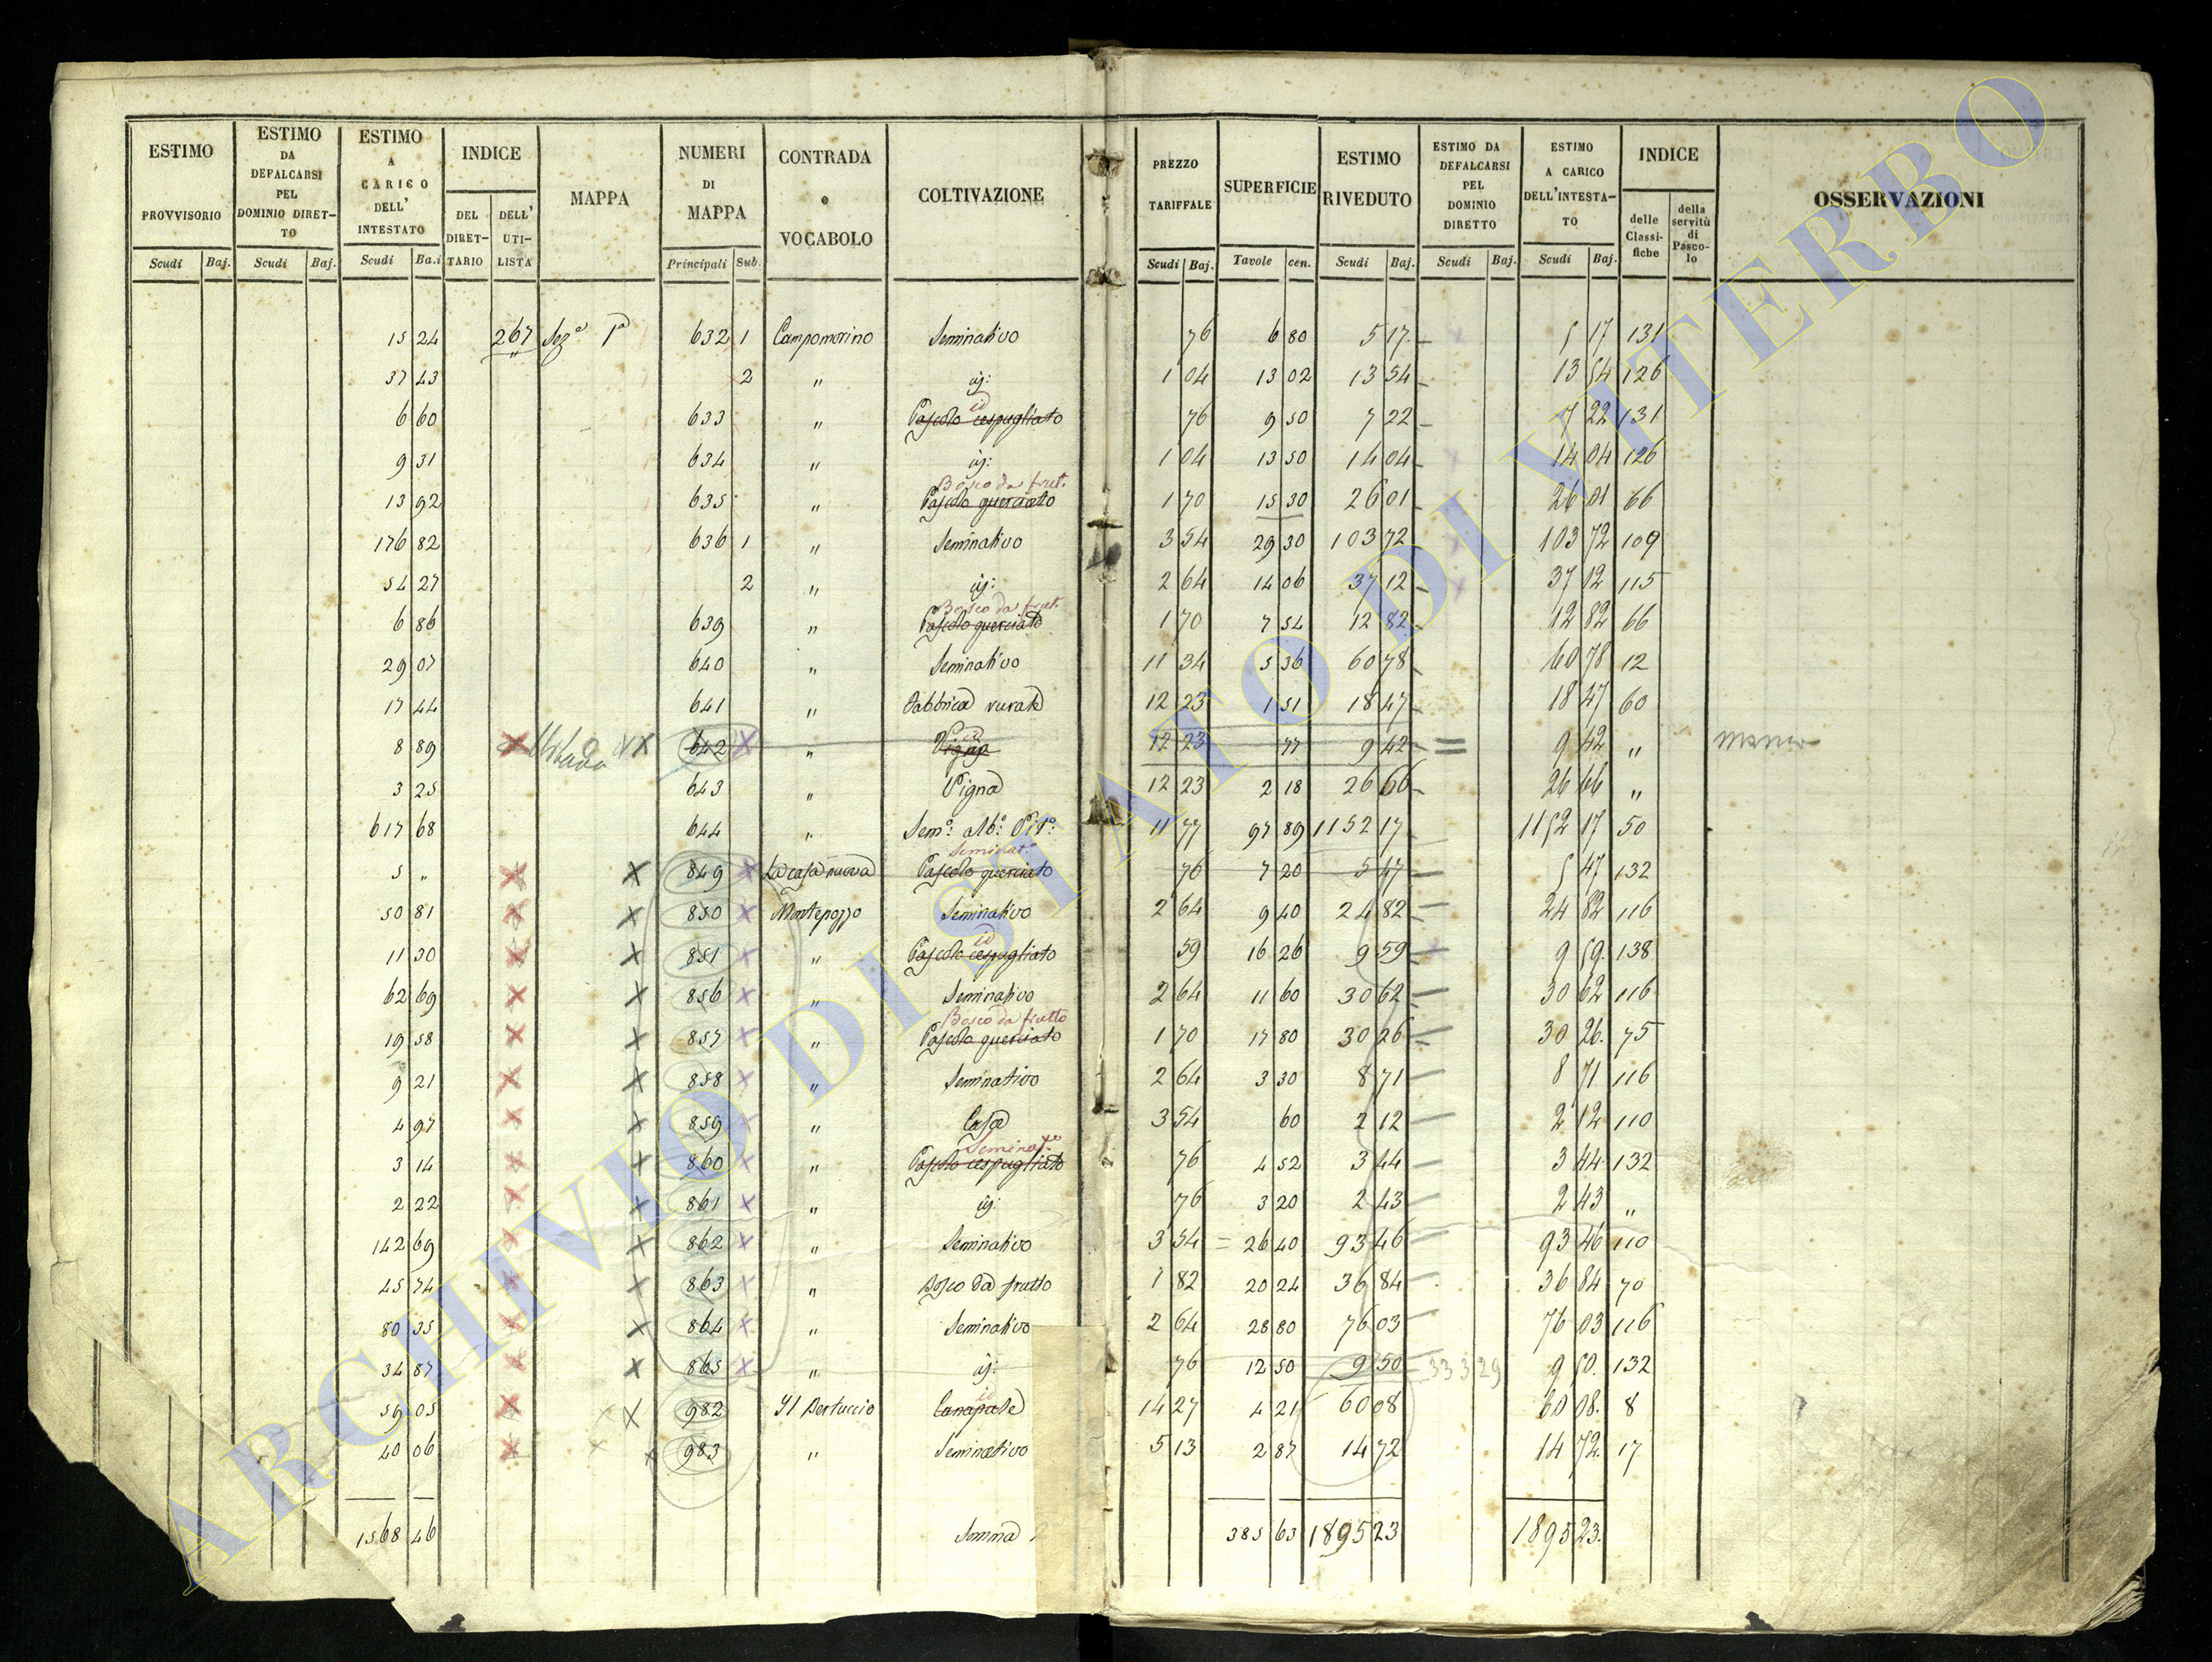 ESTIMO PROVVISORIO Scudi Baj.
ESTIMO DA DEFALCARSI PEL DOMINIO DIRETTO Scudi Baj.
ESTIMO A CARICO DELL' INTESTATO Scudi Ba.i
INDICE DEL DIRETTARIO DELL' UTILISTA
MAPPA
NUMERI DI MAPPA Principali Sub.
CONTRADA e VOCABOLO
COLTIVAZIONE
PREZZO TARIFFALE Scudi Baj.
SUPERFICIE Tavole cen.
ESTIMO RIVEDUTO Scudi Baj.
ESTIMO DA DEFALCARSI PEL DOMINIO DIRETTO Scudi Baj.
ESTIMO A CARICO DELL'INTESTATO Scudi Baj.
INDICE delle Classifiche della servitù di Pascolo
OSSERVAZIONI
15 24 267 Sez.a 1a 632 1 Campomorino Seminativo 76 6 80 5 17 5 17 131
37 43 2 " id: 1 04 13 02 13 54 13 54 126
6 60 633 " Pascolo cespugliato id 76 9 50 7 22 7 22 131
9 31 634 " id: 1 04 13 50 14 04 14 04 126
13 92 635 " Pascolo querciato Bosco da frut. 1 70 15 30 26 01 26 01 66
176 82 636 1 " Seminativo 3 54 29 30 103 72 103 72 109
54 27 2 " id: 2 64 14 06 37 12 37 12 115
6 86 639 " Pascolo querciato Bosco da frut. 1 70 7 54 12 82 12 82 66
29 07 640 " Seminativo 11 34 5 36 60 78 60 78 12
17 44 641 " Fabbrica rurale 12 23 1 51 18 47 18 47 60
8 89 X X 642 X " Vigna id 12 23 77 9 42 = 9 42 "
3 25 643 " Vigna 12 23 2 18 26 66 26 66 "
617 68 644 " Sem.o alb.o Vit.o 11 77 97 89 1152 17 1152 17 50
5 " X X 849 X La casa nuova Pascolo querciato Seminat.o 76 7 20 5 47 5 47 132
50 81 X X 850 X Montepozzo Seminativo 2 64 9 40 24 82 24 82 116
11 30 X X 851 X " Pascolo cespugliato id 59 16 26 9 59 9 59 138
62 69 X X 856 X " Seminativo 2 64 11 60 30 62 30 62 116
19 58 X X 857 X " Pascolo querciato Bosco da frutto 1 70 17 80 30 26 30 26 75
9 21 X X 858 X " Seminativo 2 64 3 30 8 71 8 71 116
4 97 X X 859 X " Casa 3 54 60 2 12 2 12 110
3 14 X X 860 X " Pascolo cespugliato Seminat.o 76 4 52 3 44 3 44 132
2 22 X X 861 X " id: 76 3 20 2 43 2 43 "
142 69 X X 862 X " Seminativo 3 54 = 26 40 93 46 93 46 110
45 74 X X 863 X " Bosco da frutto 1 82 20 24 36 84 36 84 70
80 35 X X 864 X " Seminativo 2 64 28 80 76 03 76 03 116
34 87 X X 865 X " id: 76 12 50 9 50 333 29 9 50 132
59 05 X X 982 Il Bertuccio Canapale id 14 27 4 21 60 08 60 08 8
40 06 X X 983 " Seminativo 5 13 2 87 14 72 14 72 17
1568 46 Somma 385 63 1895 23 1895 23
ARCHIVIO DI STATO DI VITERBO